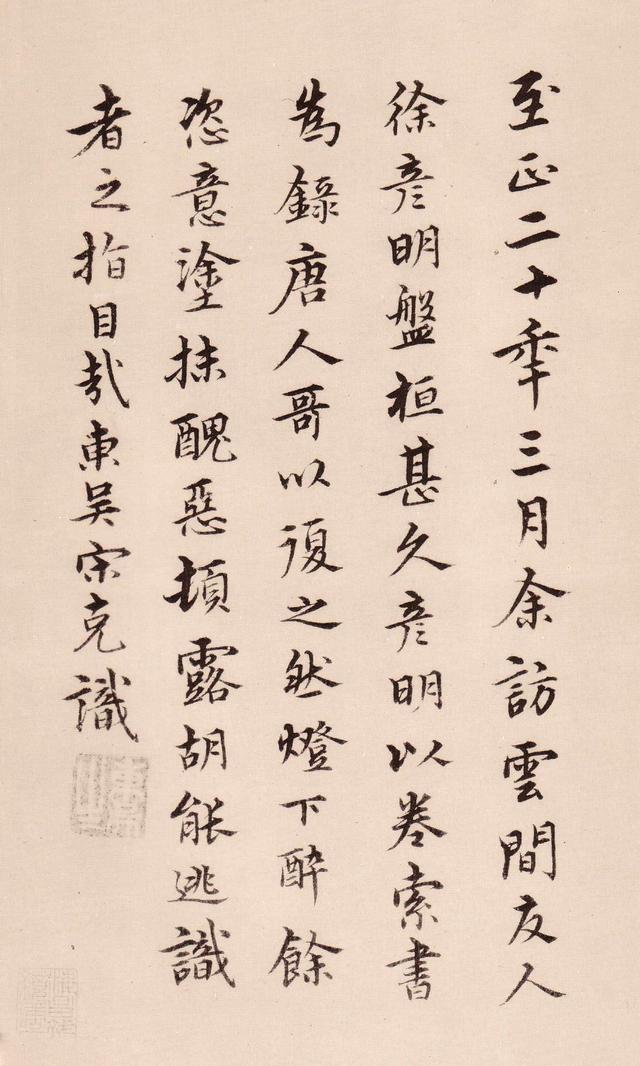 至正二十年三月余訪雲間友人
徐彦明盤桓甚久彦明以卷索書
為録唐人哥以復之然燈下醉餘
恣意塗抹醜惡頓露胡能逃識
者之指目哉東吴宋克識